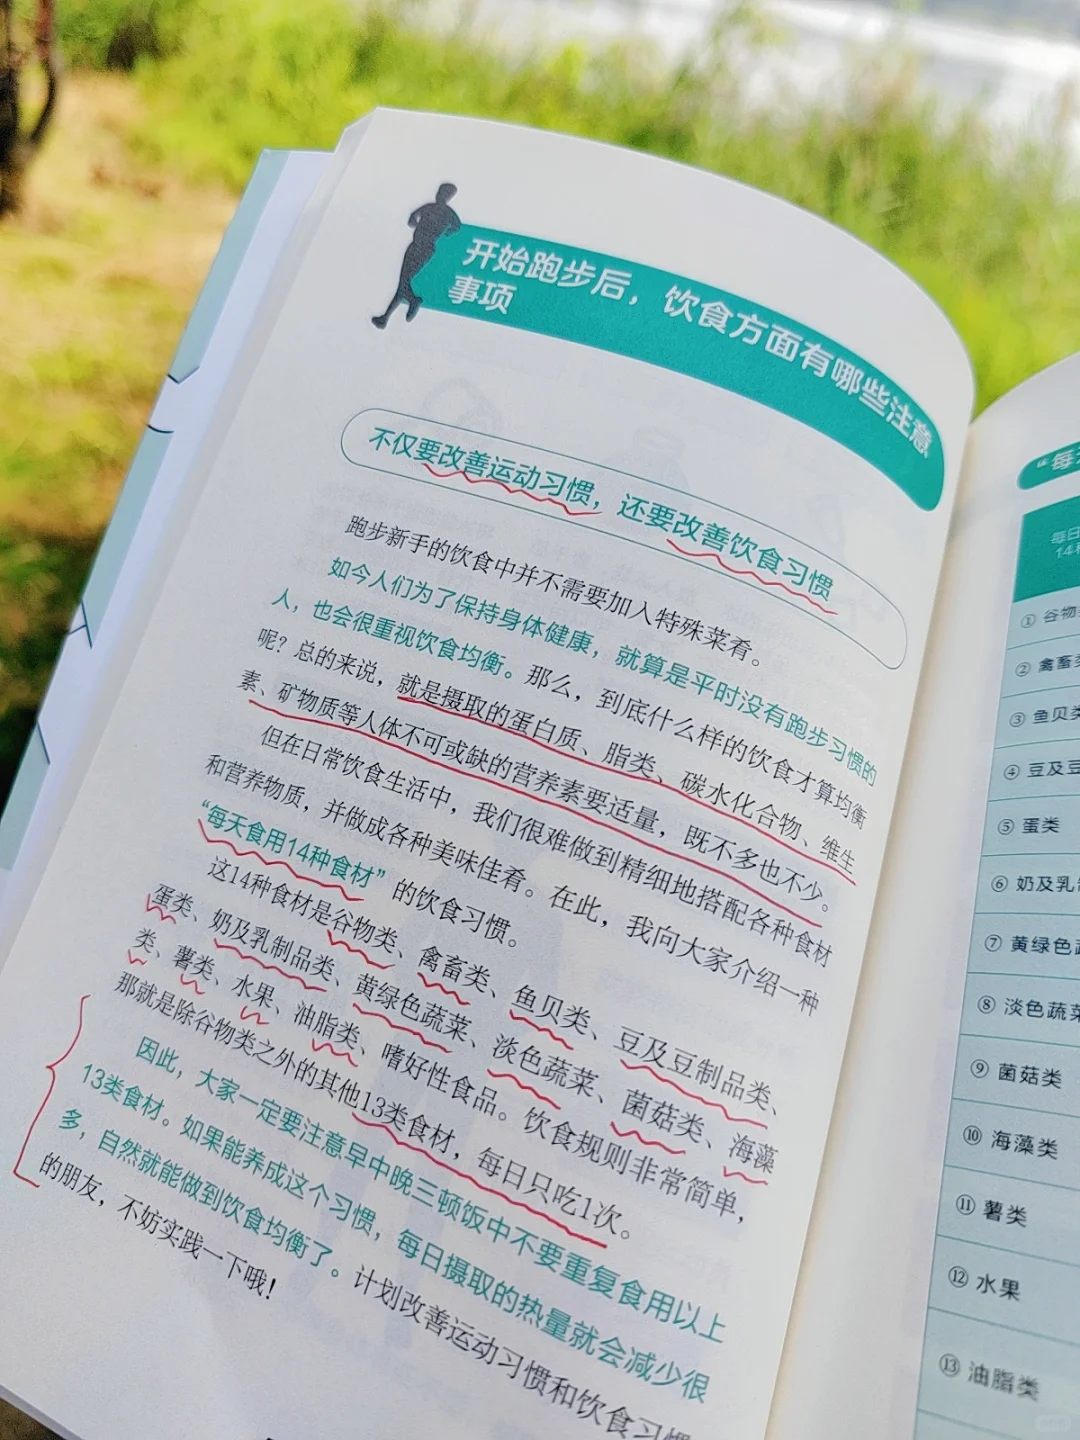 开始跑步后，饮食方面有哪些注意
事项
不仅要改善运动习惯，还要改善饮食习惯
跑步新手的饮食中并不需要加入特殊菜肴。
如今人们为了保持身体健康，就算是平时没有跑步习惯的
人，也会很重视饮食均衡。那么，到底什么样的饮食才算均衡
呢？总的来说，就是摄取的蛋白质、脂类、碳水化合物、维生
素、矿物质等人体不可或缺的营养素要适量，既不多也不少。
但在日常饮食生活中，我们很难做到精细地搭配各种食材
和营养物质，并做成各种美味佳肴。在此，我向大家介绍一种
“每天食用14种食材”的饮食习惯。
这14种食材是谷物类、禽畜类、鱼贝类、豆及豆制品类、
蛋类、奶及乳制品类、黄绿色蔬菜、淡色蔬菜、菌菇类、海藻
类、薯类、水果、油脂类、嗜好性食品。饮食规则非常简单，
那就是除谷物类之外的其他13类食材，每日只吃1次。
因此，大家一定要注意早中晚三顿饭中不要重复食用以上
13类食材。如果能养成这个习惯，每日摄取的热量就会减少很
多，自然就能做到饮食均衡了。计划改善运动习惯和饮食习惯
的朋友，不妨实践一下哦！
“每
每日
14
① 谷物
② 禽畜
③ 鱼贝类
④ 豆及豆
⑤ 蛋类
⑥ 奶及乳
⑦ 黄绿色
⑧ 淡色蔬菜
⑨ 菌菇类
⑩ 海藻类
⑪ 薯类
⑫ 水果
⑬ 油脂类